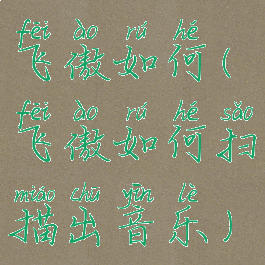 fēi ào rú hé
飞傲如何(
fēi ào rú hé sǎo
飞傲如何扫
miáo chū yīn lè
描出音乐)